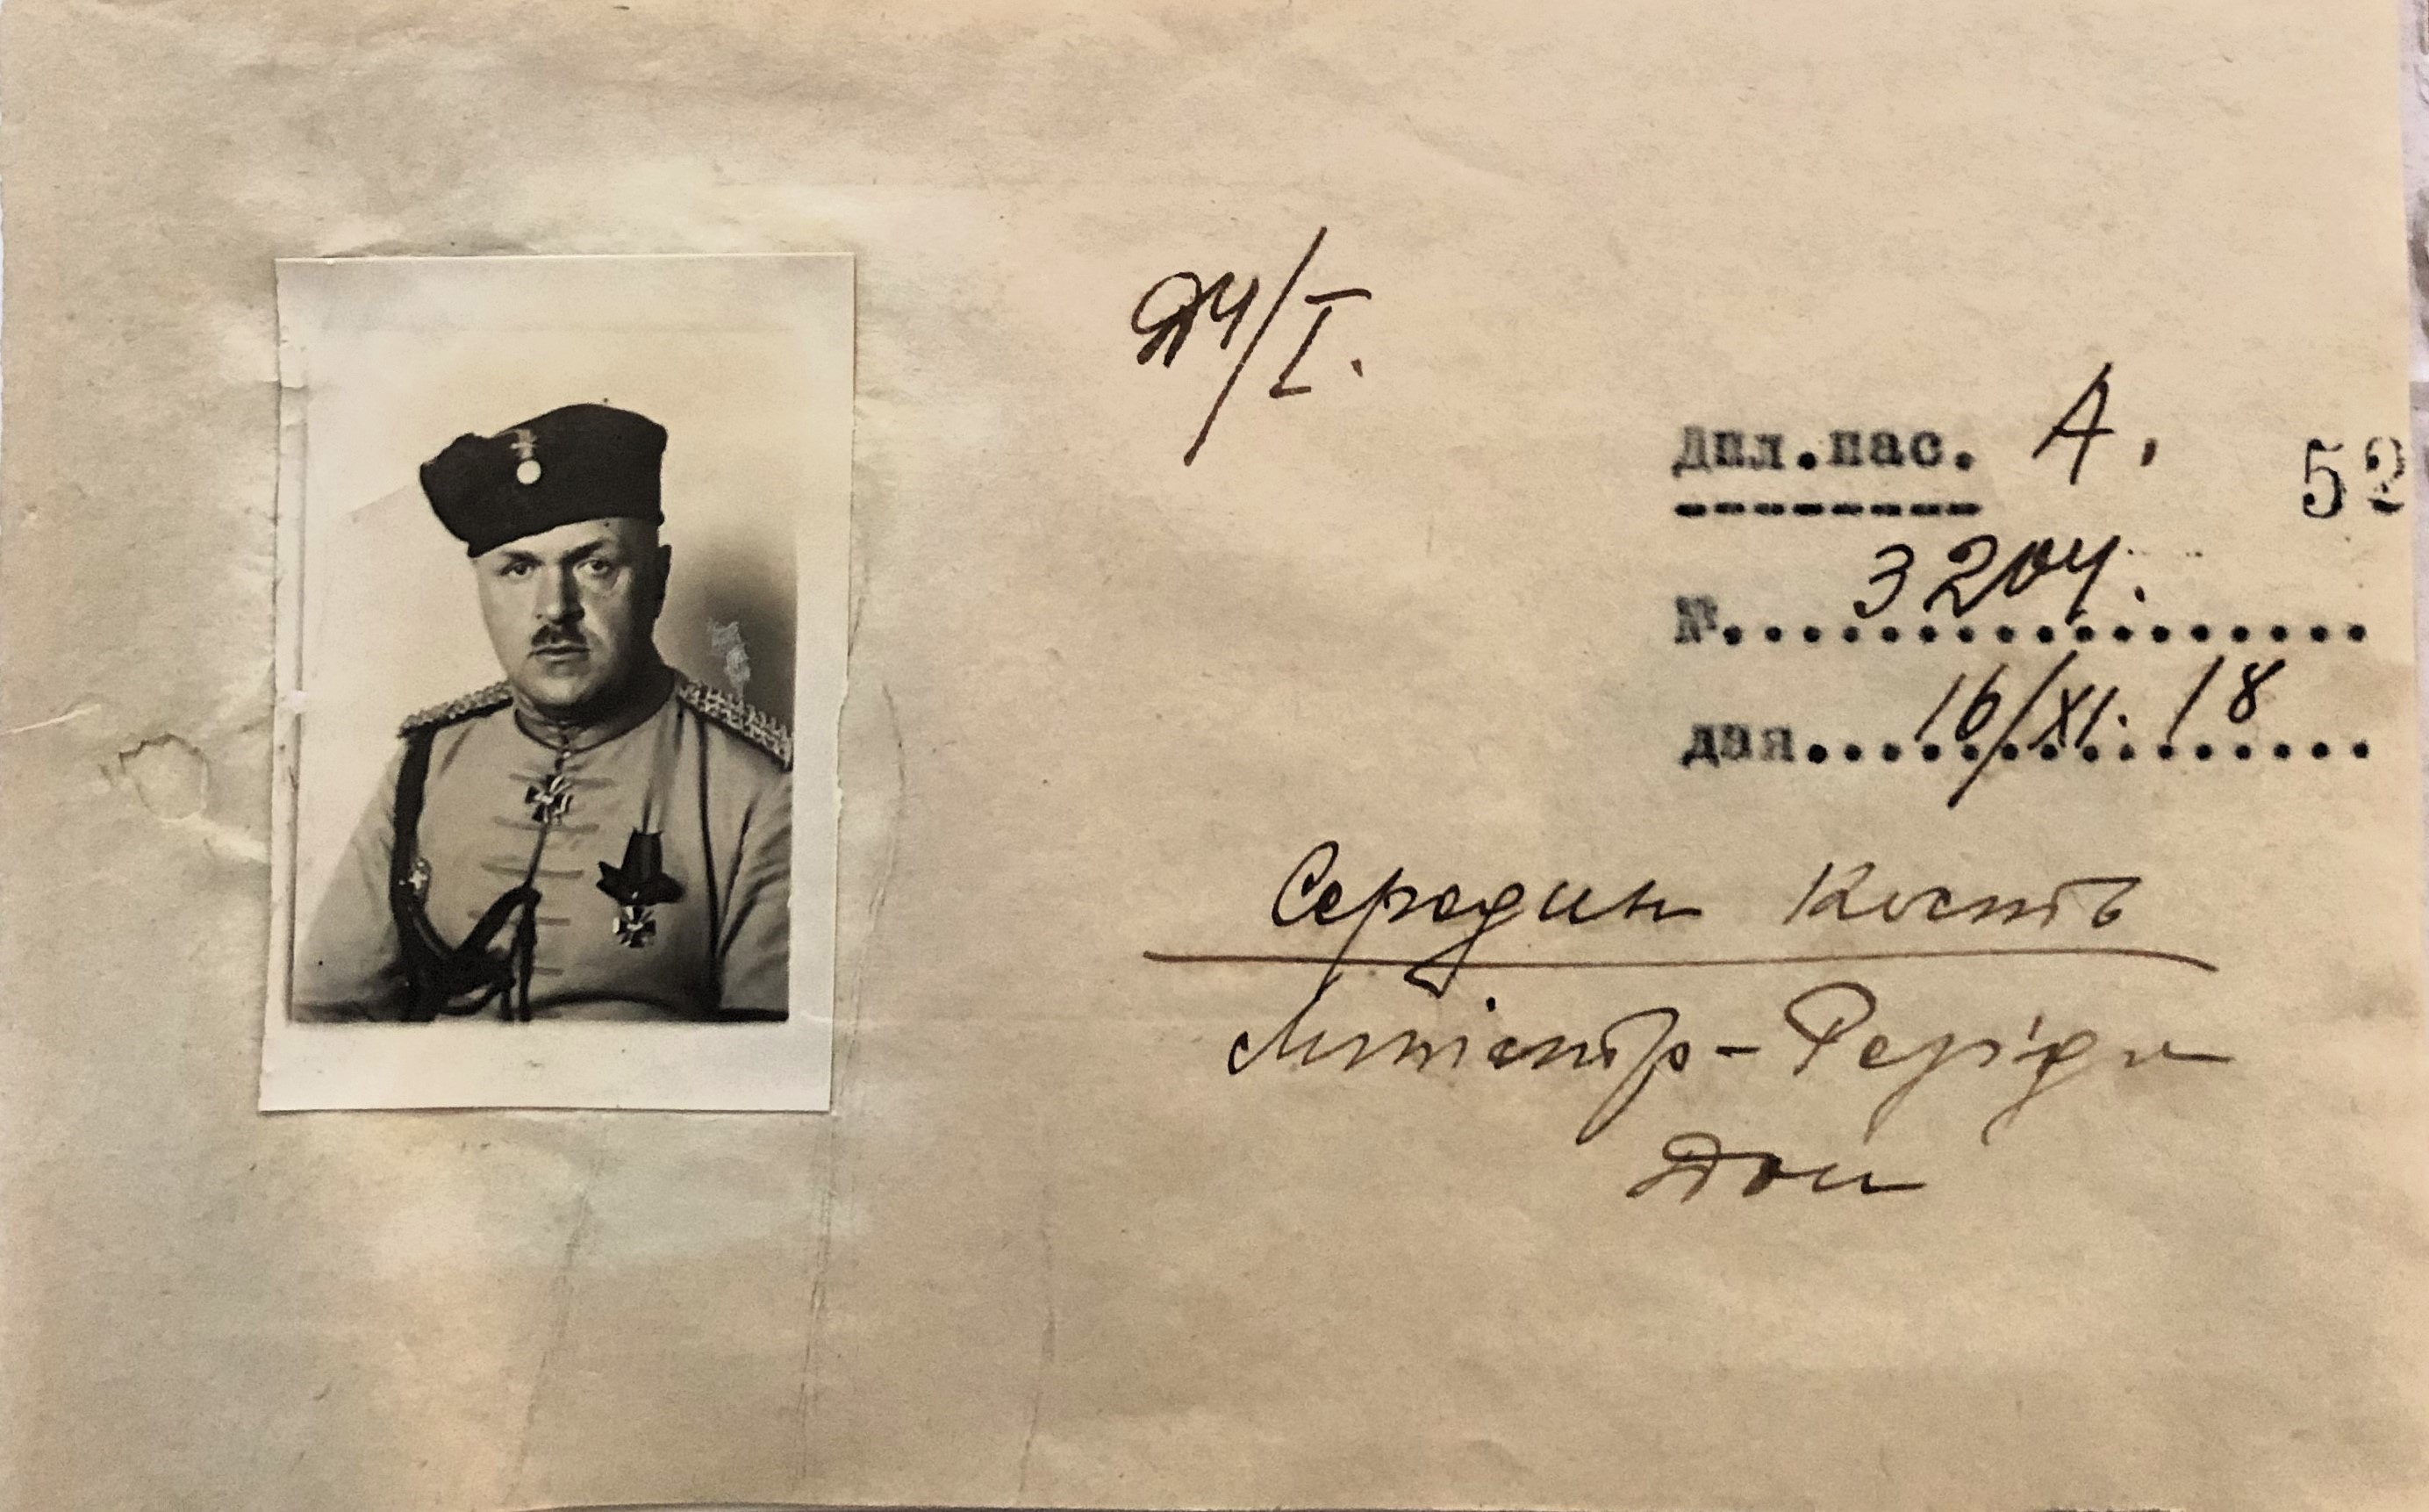 Д4/I.
Дпл.пас. А.
52
№ 3204.
дня 16/XI. 18
Середин Кость
Міністр-Резіден
Дон